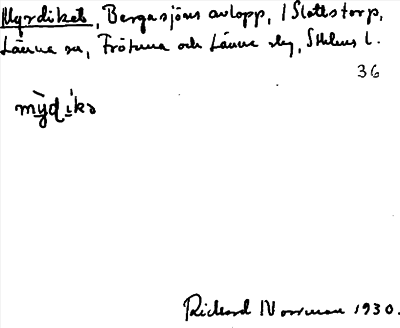 Myrdiket, Bergasjöns avlopp, / Slottstorp,
Länna sn, Frötuna och Länna skg, Sthlms l.
36
mỳdi̇kə
Rickard Norrman 1930.